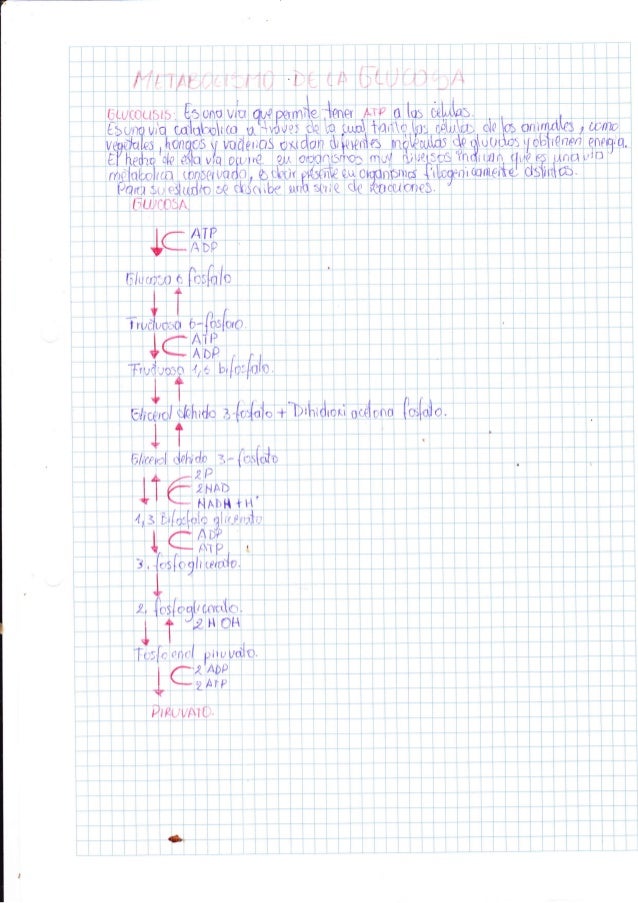 METABOLISMO DE LA GLUCOSA
GLUCOLISIS: Es una vía que permite tener ATP a las células.
Es una via catabolica a traves de la cual tanto las celulas de los animales, como
vegetales, hongos y vacterias oxidan diferentes moleculas de glucidos y obtienen energia.
El hecho de esta via ocurre en organismos muy diversos indican que es una via
metabolica conservada, es decir presente en organismos filogenicamente distintos.
Para su estudio se describe una serie de reacciones.
GLUCOSA
ATP
ADP
Glucosa 6 fosfato
Fructuosa 6-fosforo.
ATP
ADP
Fructuosa 1,6 bifosfato.
Glicerol dehido 3-fosfato + Dihidroxi acetona fosfato.
Glicerol dehido 3-fosfato
2P
2NAD
NADH + H+
1,3 Bifosfato glicerato
ADP
ATP
3. fosfoglicerato.
2. fosfoglicerato.
2 HOH
Fosfoenol piruvato.
2 ADP
2 ATP
PIRUVATO.